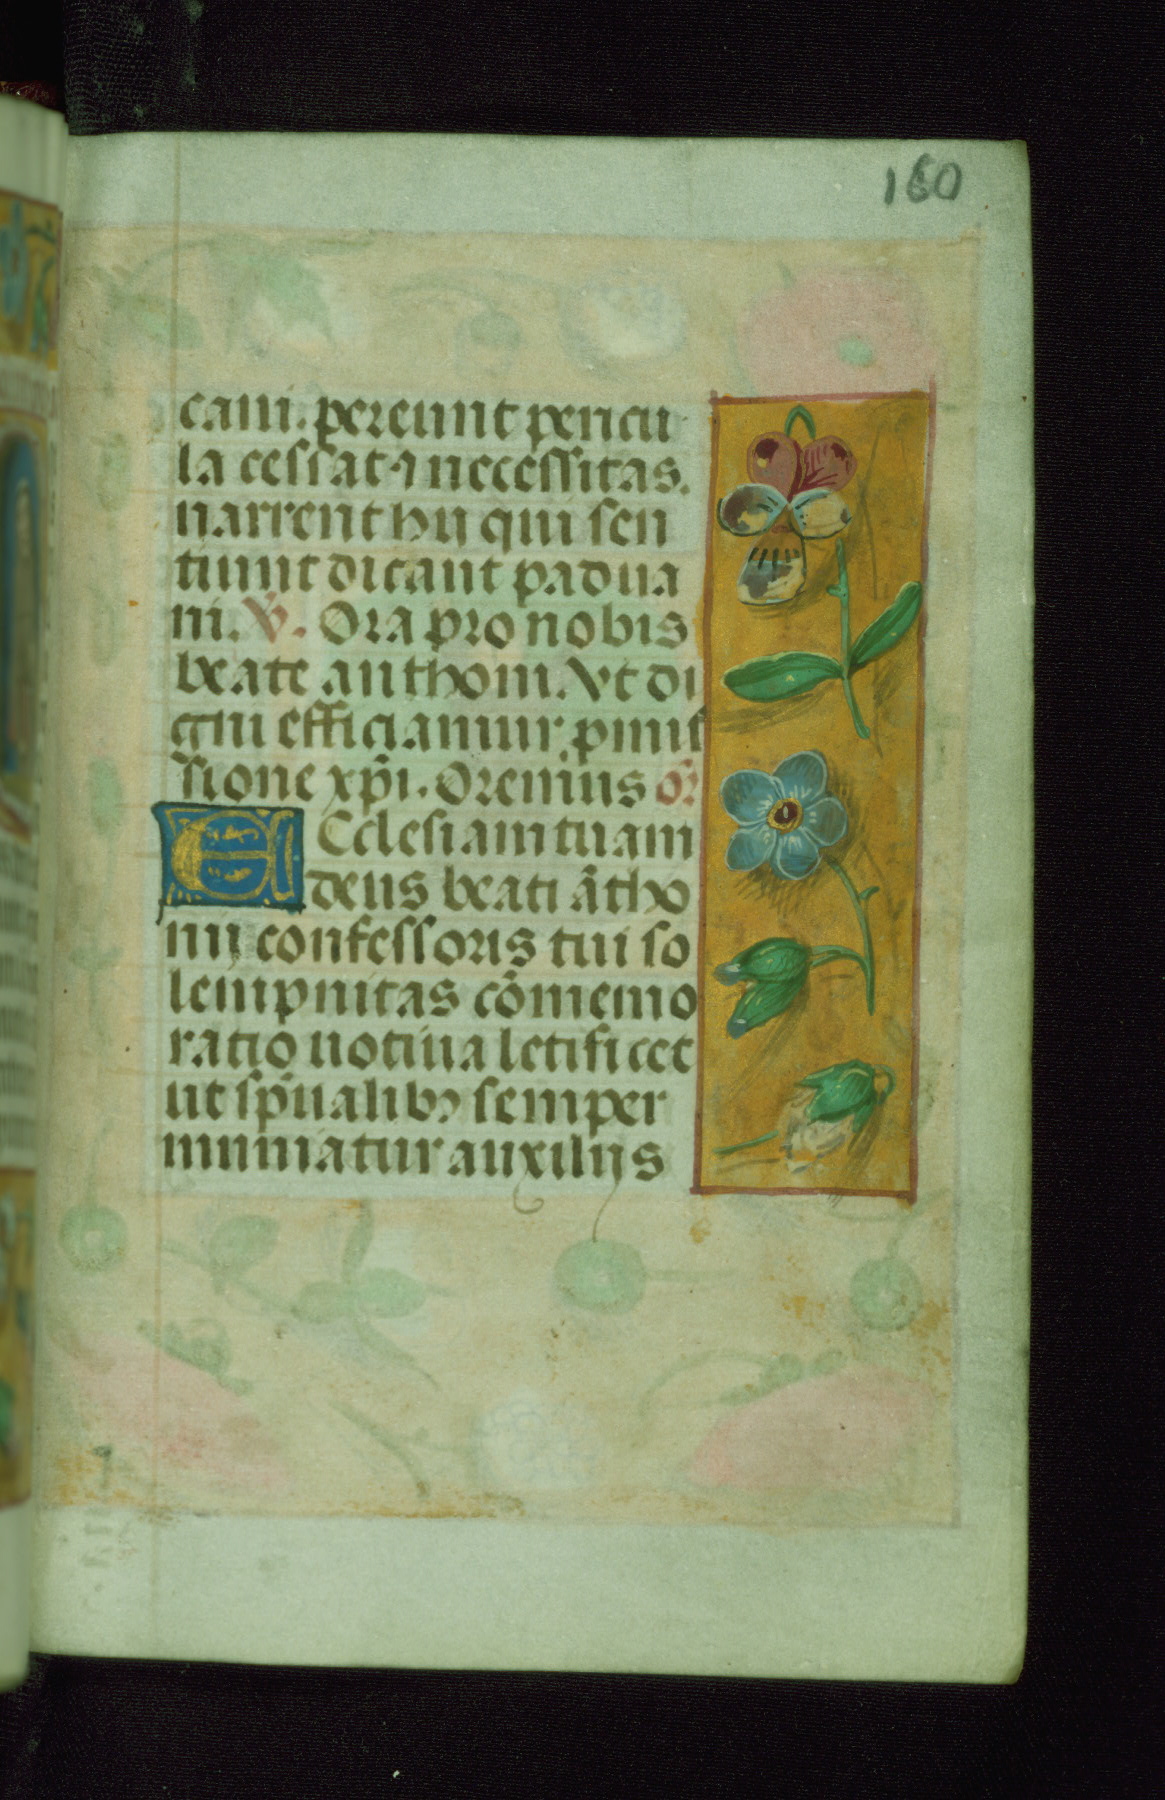 160
cani. pereunt pericu
la cessat ⁊ necessitas.
narrent hij qui sen
tiunt dicant padua
ni. V̷. Ora pro nobis
beate anthoni. Vt di
gni efficiamur p̱mis
sione xp̄i. Oremus or̄
ECclesiam tuam
deus beati ātho
nij confessoris tui so
lempnitas cōmemo
ratio uotiua letificet
ut sp̄ualibꝫ semper
muniatur auxilijs